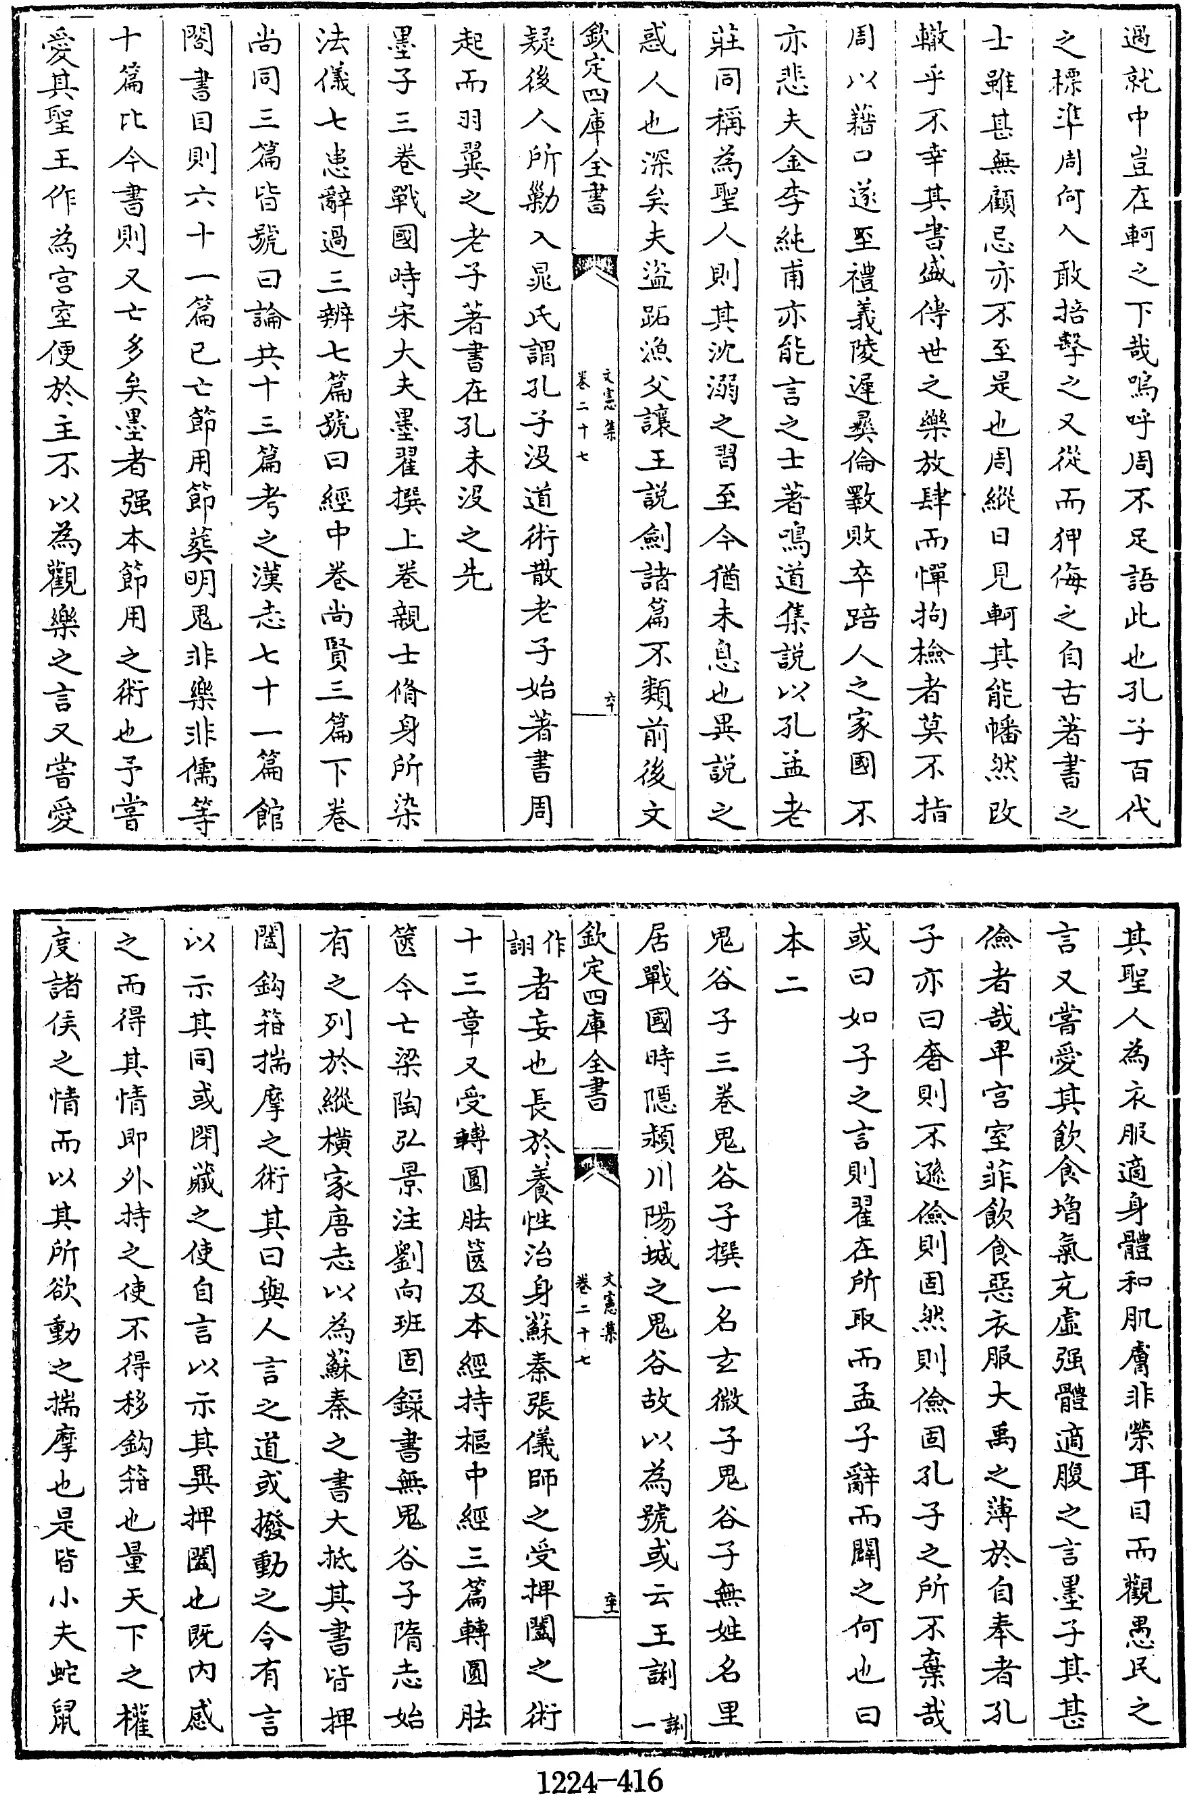 過就中豈在軻之下哉嗚呼周不足語此也孔子百代
之標準周何人敢掊擊之又從而狎侮之自古著書之
士雖甚無顧忌亦不至是也周縱日見軻其能幡然改
轍乎不幸其書盛傳世之樂放肆而憚拘檢者莫不指
周以藉口遂至禮義陵遲彞倫斁敗卒踣人之家國不
亦悲夫金李純甫亦能言之士著鳴道集説以孔孟老
莊同稱為聖人則其沈溺之習至今猶未息也異説之
惑人也深矣夫盜跖漁父讓王説劍諸篇不類前後文
欽定四庫全書
文憲集
卷二十七
疑後人所勦入晁氏謂孔子沒道術散老子始著書周
起而羽翼之老子著書在孔未沒之先
墨子三卷戰國時宋大夫墨翟撰上卷親士脩身所染
法儀七患辭過三辨七篇號曰經中卷尚賢三篇下卷
尚同三篇皆號曰論共十三篇考之漢志七十一篇館
閣書目則六十一篇已亡節用節葬明鬼非樂非儒等
十篇比今書則又亡多矣墨者强本節用之術也予嘗
愛其聖王作為宫室便於主不以為觀樂之言又嘗愛
其聖人為衣服適身體和肌膚非榮耳目而觀愚民之
言又嘗愛其飲食增氣充虛强體適腹之言墨子其甚
儉者哉卑宫室菲飲食惡衣服大禹之薄於自奉者孔
子亦曰奢則不遜儉則固然則儉固孔子之所不棄哉
或曰如子之言則翟在所取而孟子辭而闢之何也曰
本二
鬼谷子三卷鬼谷子撰一名玄微子鬼谷子無姓名里
居戰國時隱潁川陽城之鬼谷故以為號或云王誗一誗
欽定四庫全書
文憲集
卷二十七
作詡者妄也長於養性治身蘇秦張儀師之受捭闔之術
十三章又受轉圓胠篋及本經持樞中經三篇轉圓胠
篋今亡梁陶弘景注劉向班固錄書無鬼谷子隋志始
有之列於縱横家唐志以為蘇秦之書大抵其書皆捭
闔鈎箝揣摩之術其曰與人言之道或撥動之令有言
以示其同或閉藏之使自言以示其異捭闔也既内感
之而得其情即外持之使不得移鈎箝也量天下之權
度諸侯之情而以其所欲動之揣摩也是皆小夫蛇鼠
1224-416